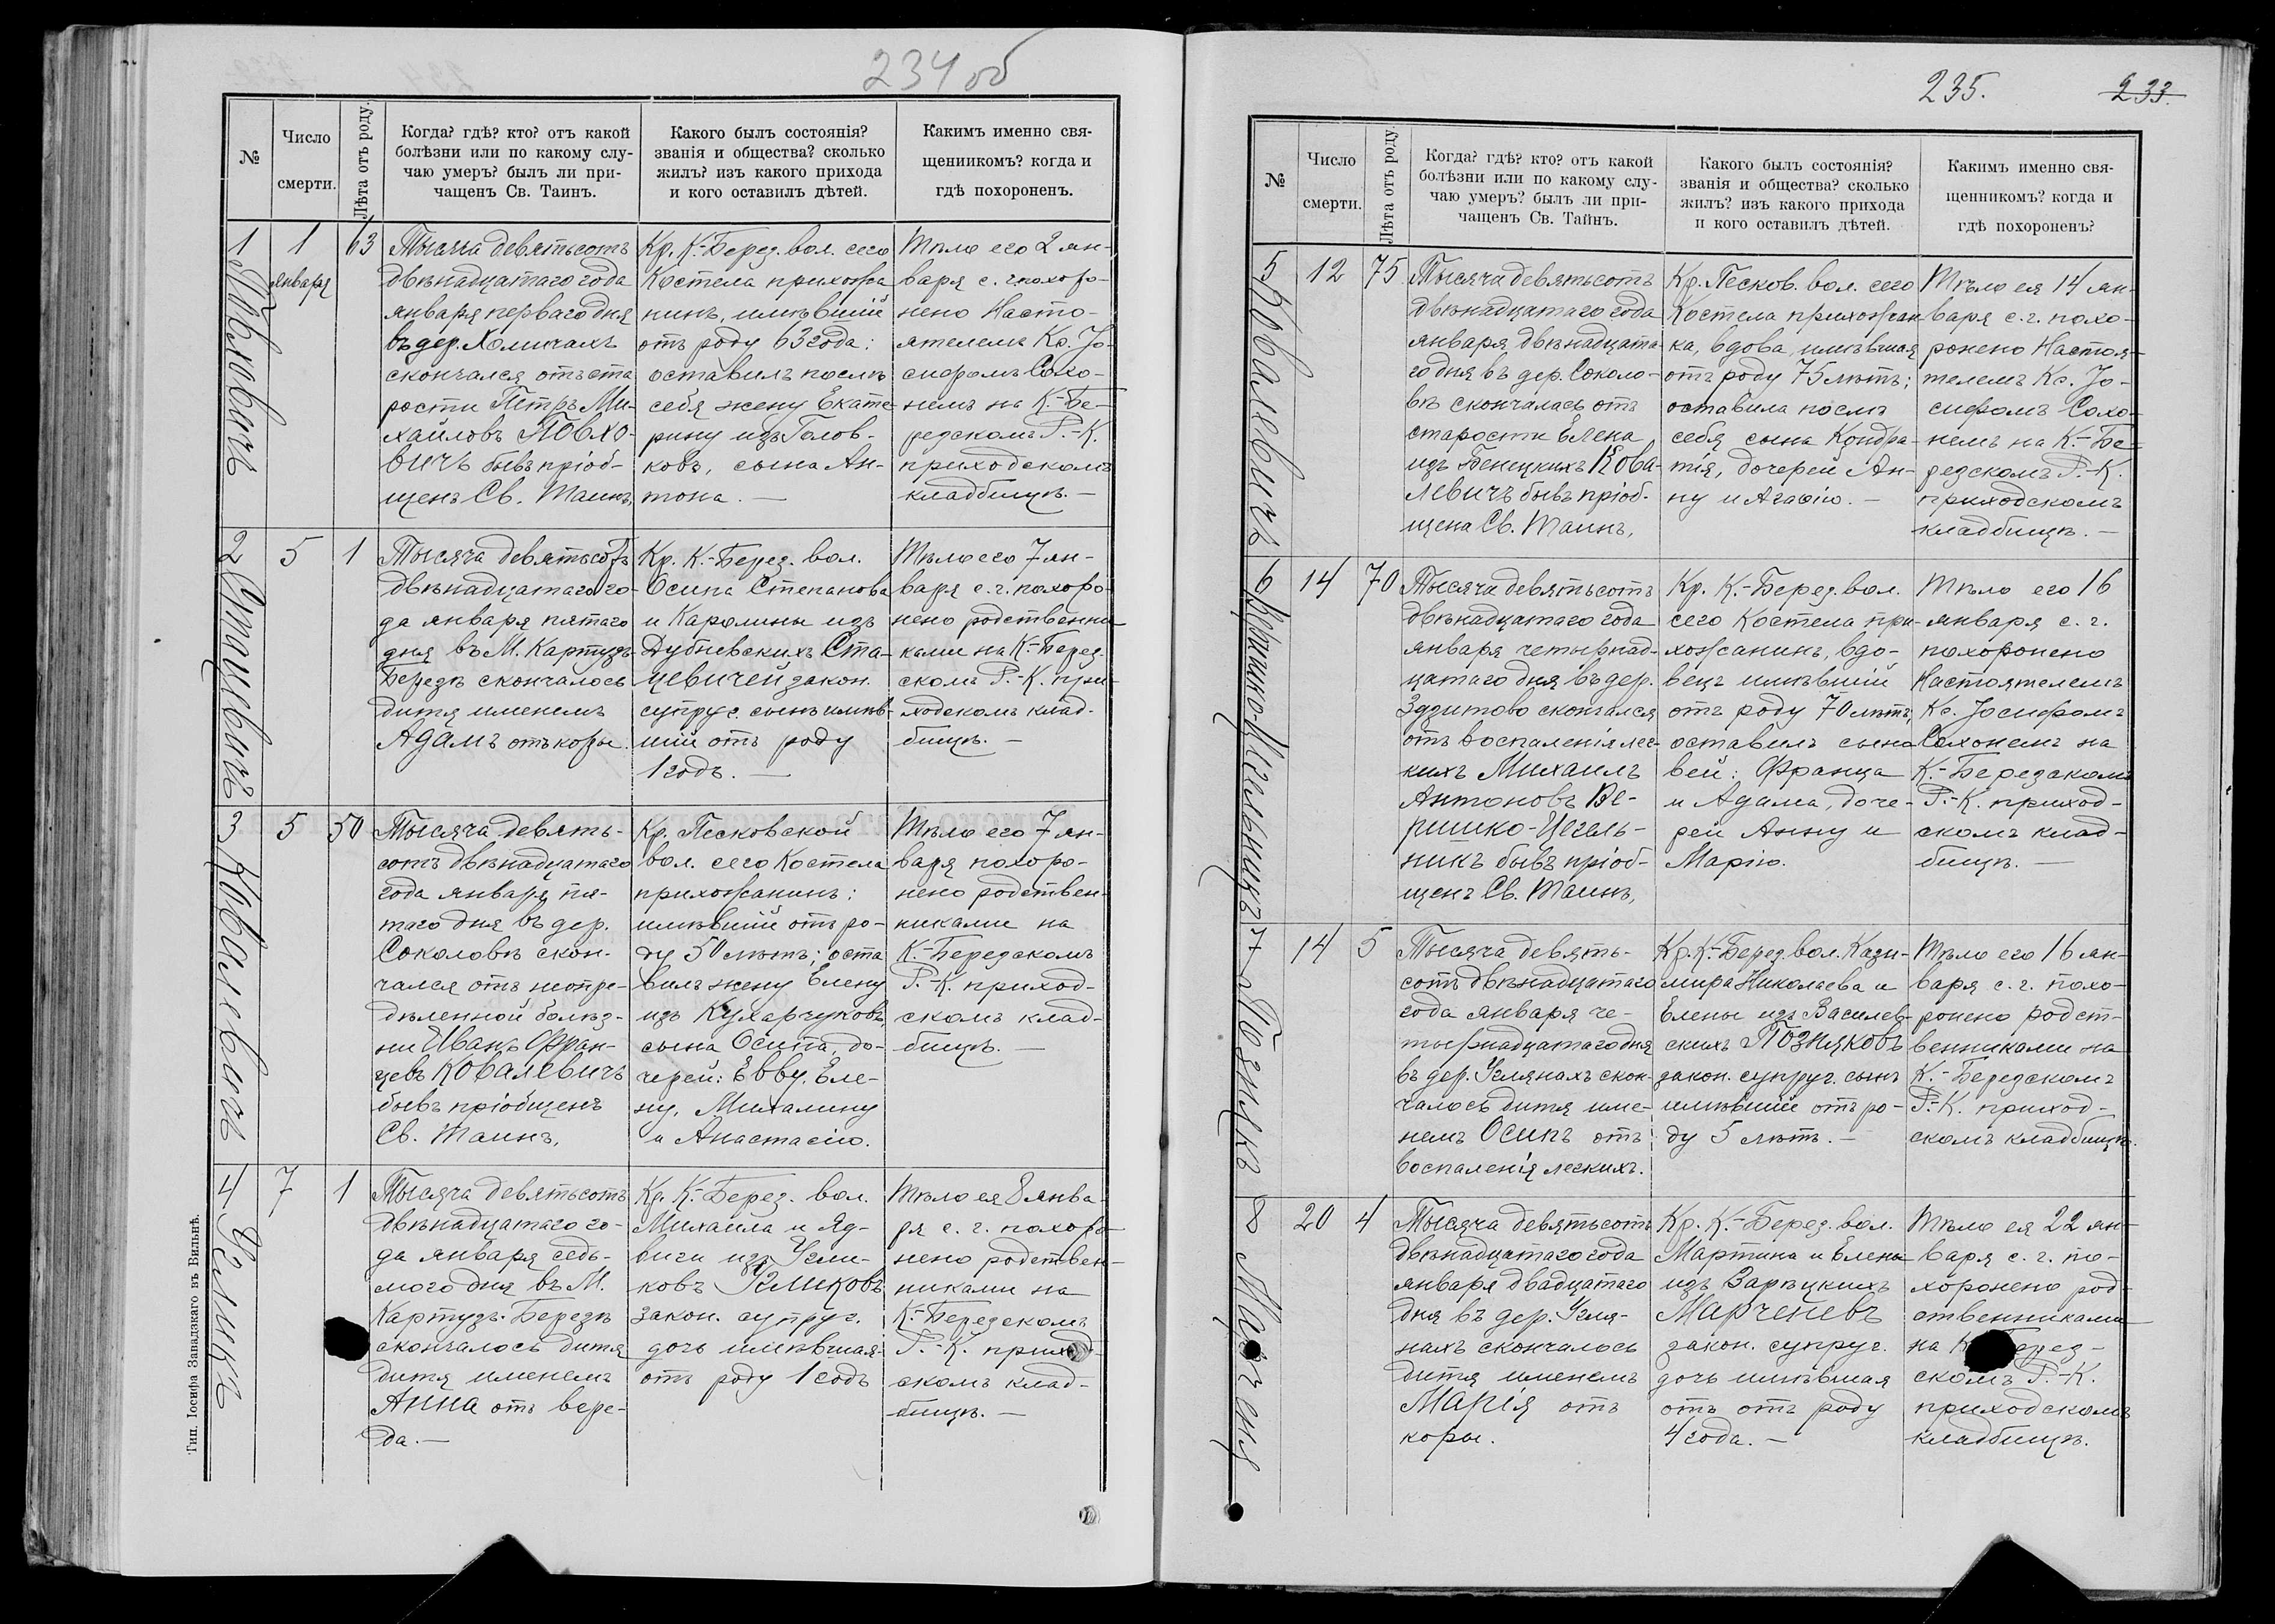 234 об
№
Число
смерти.
Лѣта отъ роду.
Когда? гдѣ? кто? отъ какой
болѣзни или по какому слу-
чаю умеръ? былъ ли при-
чащенъ Св. Таинъ.
Какого былъ состоянія?
званія и общества? сколько
жилъ? изъ какого прихода
и кого оставилъ дѣтей.
Какимъ именно свя-
щенникомъ? когда и
гдѣ похороненъ.
1
Повховичъ
1
января
63
Тысяча девятьсотъ
двѣнадцатаго года
января перваго дня
въ дер. Хомичахъ
скончался отъ ста
рости Петръ Ми-
хайловъ Повхо-
вичъ бывъ пріоб-
щенъ Св. Таинъ,
Кр. К.-Берез. вол. сего
Костела прихожа
нинъ, имѣвшій
отъ роду 63 года:
оставилъ послѣ
себя жену Екате
рину изъ Голов-
ковъ, сына Ан-
тона. —
Тѣло его 2 ян-
варя с. г. похоро-
нено Насто-
ятелемъ Кс. Іо-
сифомъ Сохо-
немъ на К.-Бе-
резскомъ Р.-К.
приходскомъ
кладбищѣ. —
2
Стацевичъ
5
1
Тысяча девятьсотъ
двѣнадцатаго го-
да января пятаго
дня въ М. Картузъ-
Березѣ скончалось
дитя именемъ
Адамъ отъ коры.
Кр. К.-Берез. вол.
Осипа Степанова
и Каролины изъ
Дубневскихъ Ста-
цевичей закон.
супруг. сынъ имѣв-
шій отъ роду
1 годъ. —
Тѣло его 7 ян-
варя с. г. похоро-
нено родственни
ками на К.-Берез-
скомъ Р.-К. при-
ходскомъ клад-
бищѣ. —
3
Ковалевичъ
5
50
Тысяча девять-
сотъ двѣнадцатаго
года января пя-
таго дня въ дер.
Соколовѣ скон-
чался отъ неопре-
дѣленной болѣз-
ни Иванъ Фран-
цевъ Ковалевичъ
бывъ пріобщенъ
Св. Таинъ,
Кр. Песковской
вол. сего Костела
прихожанинъ:
имѣвшій отъ ро-
ду 50 лѣтъ; оста
вилъ жену Елену
изъ Кухарчуковъ,
сына Осипа, до-
черей: Евву, Еле-
ну, Михалину
и Анастасію.
Тѣло его 7 ян-
варя похоро-
нено родствен-
никами на
К.-Березскомъ
Р.-К. приход-
скомъ клад-
бищѣ. —
4
7
1
Тысяча девятьсотъ
двѣнадцатаго го-
да января седь-
мого дня въ М.
Картузъ-Березѣ
скончалось дитя
дитя именемъ
Анна отъ вере-
да. —
Кр. К.-Берез. вол.
Михаила и Яд-
виги изъ
закон. супруг.
дочь имѣвшая
отъ роду 1 годъ
Тѣло ея 8 янва-
ря с. г. похоро-
нено родствен-
никами на
К.-Березскомъ
Р.-К. приход-
скомъ клад-
бищѣ. —
Тип. Іосифа Завадзкаго въ Вильнѣ.
235.
233.
№
Число
смерти.
Лѣта отъ роду.
Когда? гдѣ? кто? отъ какой
болѣзни или по какому слу-
чаю умеръ? былъ ли при-
чащенъ Св. Тайнъ.
Какого былъ состоянія?
званія и общества? сколько
жилъ? изъ какого прихода
и кого оставилъ дѣтей.
Какимъ именно свя-
щенникомъ? когда и
гдѣ похороненъ?
5
Ковалевичъ
12
75
Тысяча девятьсотъ
двѣнадцатаго года
января двѣнадцата-
го дня въ дер. Соколо-
вѣ скончалась отъ
старости Елена
изъ Бенецкихъ Кова-
левичъ бывъ пріоб-
щена Св. Таинъ,
Кр. Песков. вол. сего
Костела прихожан-
ка, вдова, имѣвшая
отъ роду 75 лѣтъ;
оставила послѣ
себя сына Кондра-
тія, дочерей Ан-
ну и Агафію. —
Тѣло ея 14 ян-
варя с. г. похо-
ронено Настоя-
телемъ Кс. Іо-
сифомъ Сохо-
немъ на К.-Бе-
резскомъ Р.-К.
приходскомъ
кладбищѣ. —
6
14
70
Тысяча девятьсотъ
двѣнадцатаго года
января четырнад-
цатаго дня въ дер.
Здзитово скончался
отъ воспаленія лег-
кихъ Михаилъ
Антоновъ Ве-
ришко-Цегель-
никъ бывъ пріоб-
щенъ Св. Таинъ,
Кр. К.-Берез. вол.
сего Костела при-
хожанинъ, вдо-
вецъ имѣвшій
отъ роду 70 лѣтъ,
оставилъ сыно
вей: Франца
и Адама, доче-
рей Анну и
Марію.
Тѣло его 16
января с. г.
похоронено
Настоятелемъ
Кс. Іосифомъ
Сохонемъ на
К.-Березскомъ
Р.-К. приход-
скомъ клад-
бищѣ. —
7
Познякъ
14
5
Тысяча девять-
сотъ двѣнадцатаго
года января че-
тырнадцатаго дня
въ дер. Углянахъ скон-
чалось дитя име-
немъ Осипъ отъ
воспаленія легкихъ.
Кр. К.-Берез. вол. Кази-
мира Николаева и
Елены изъ Василев-
скихъ Позняковъ
закон. супруг. сынъ
имѣвшій отъ ро-
ду 5 лѣтъ. —
Тѣло его 16 ян-
варя с. г. похо-
ронено родст-
венниками на
К.-Березскомъ
Р.-К. приход-
скомъ кладбищѣ.
8
Марченя
20
4
Тысяча девятьсотъ
двѣнадцатаго года
января двадцатаго
дня въ дер. Угля-
нахъ скончалось
дитя именемъ
Марія отъ
коры.
Кр. К.-Берез. вол.
Мартина и Елены
изъ Зарѣцкихъ
Марченевъ
закон. супруг.
дочь имѣвшая
отъ отъ роду
4 года. —
Тѣло ея 22 ян-
варя с. г. по-
хоронено род-
ственниками
на К.-Берез-
скомъ Р.-К.
приходскомъ
кладбищѣ.